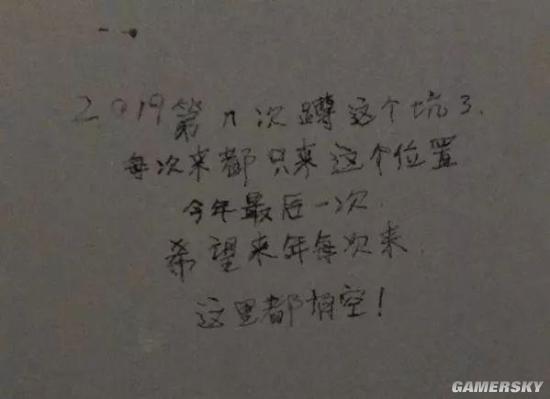 2019第n次蹲这个坑了.
每次来都只来这个位置
今年最后一次.
希望来年每次来.
这里都埇空!
GAMERSKY